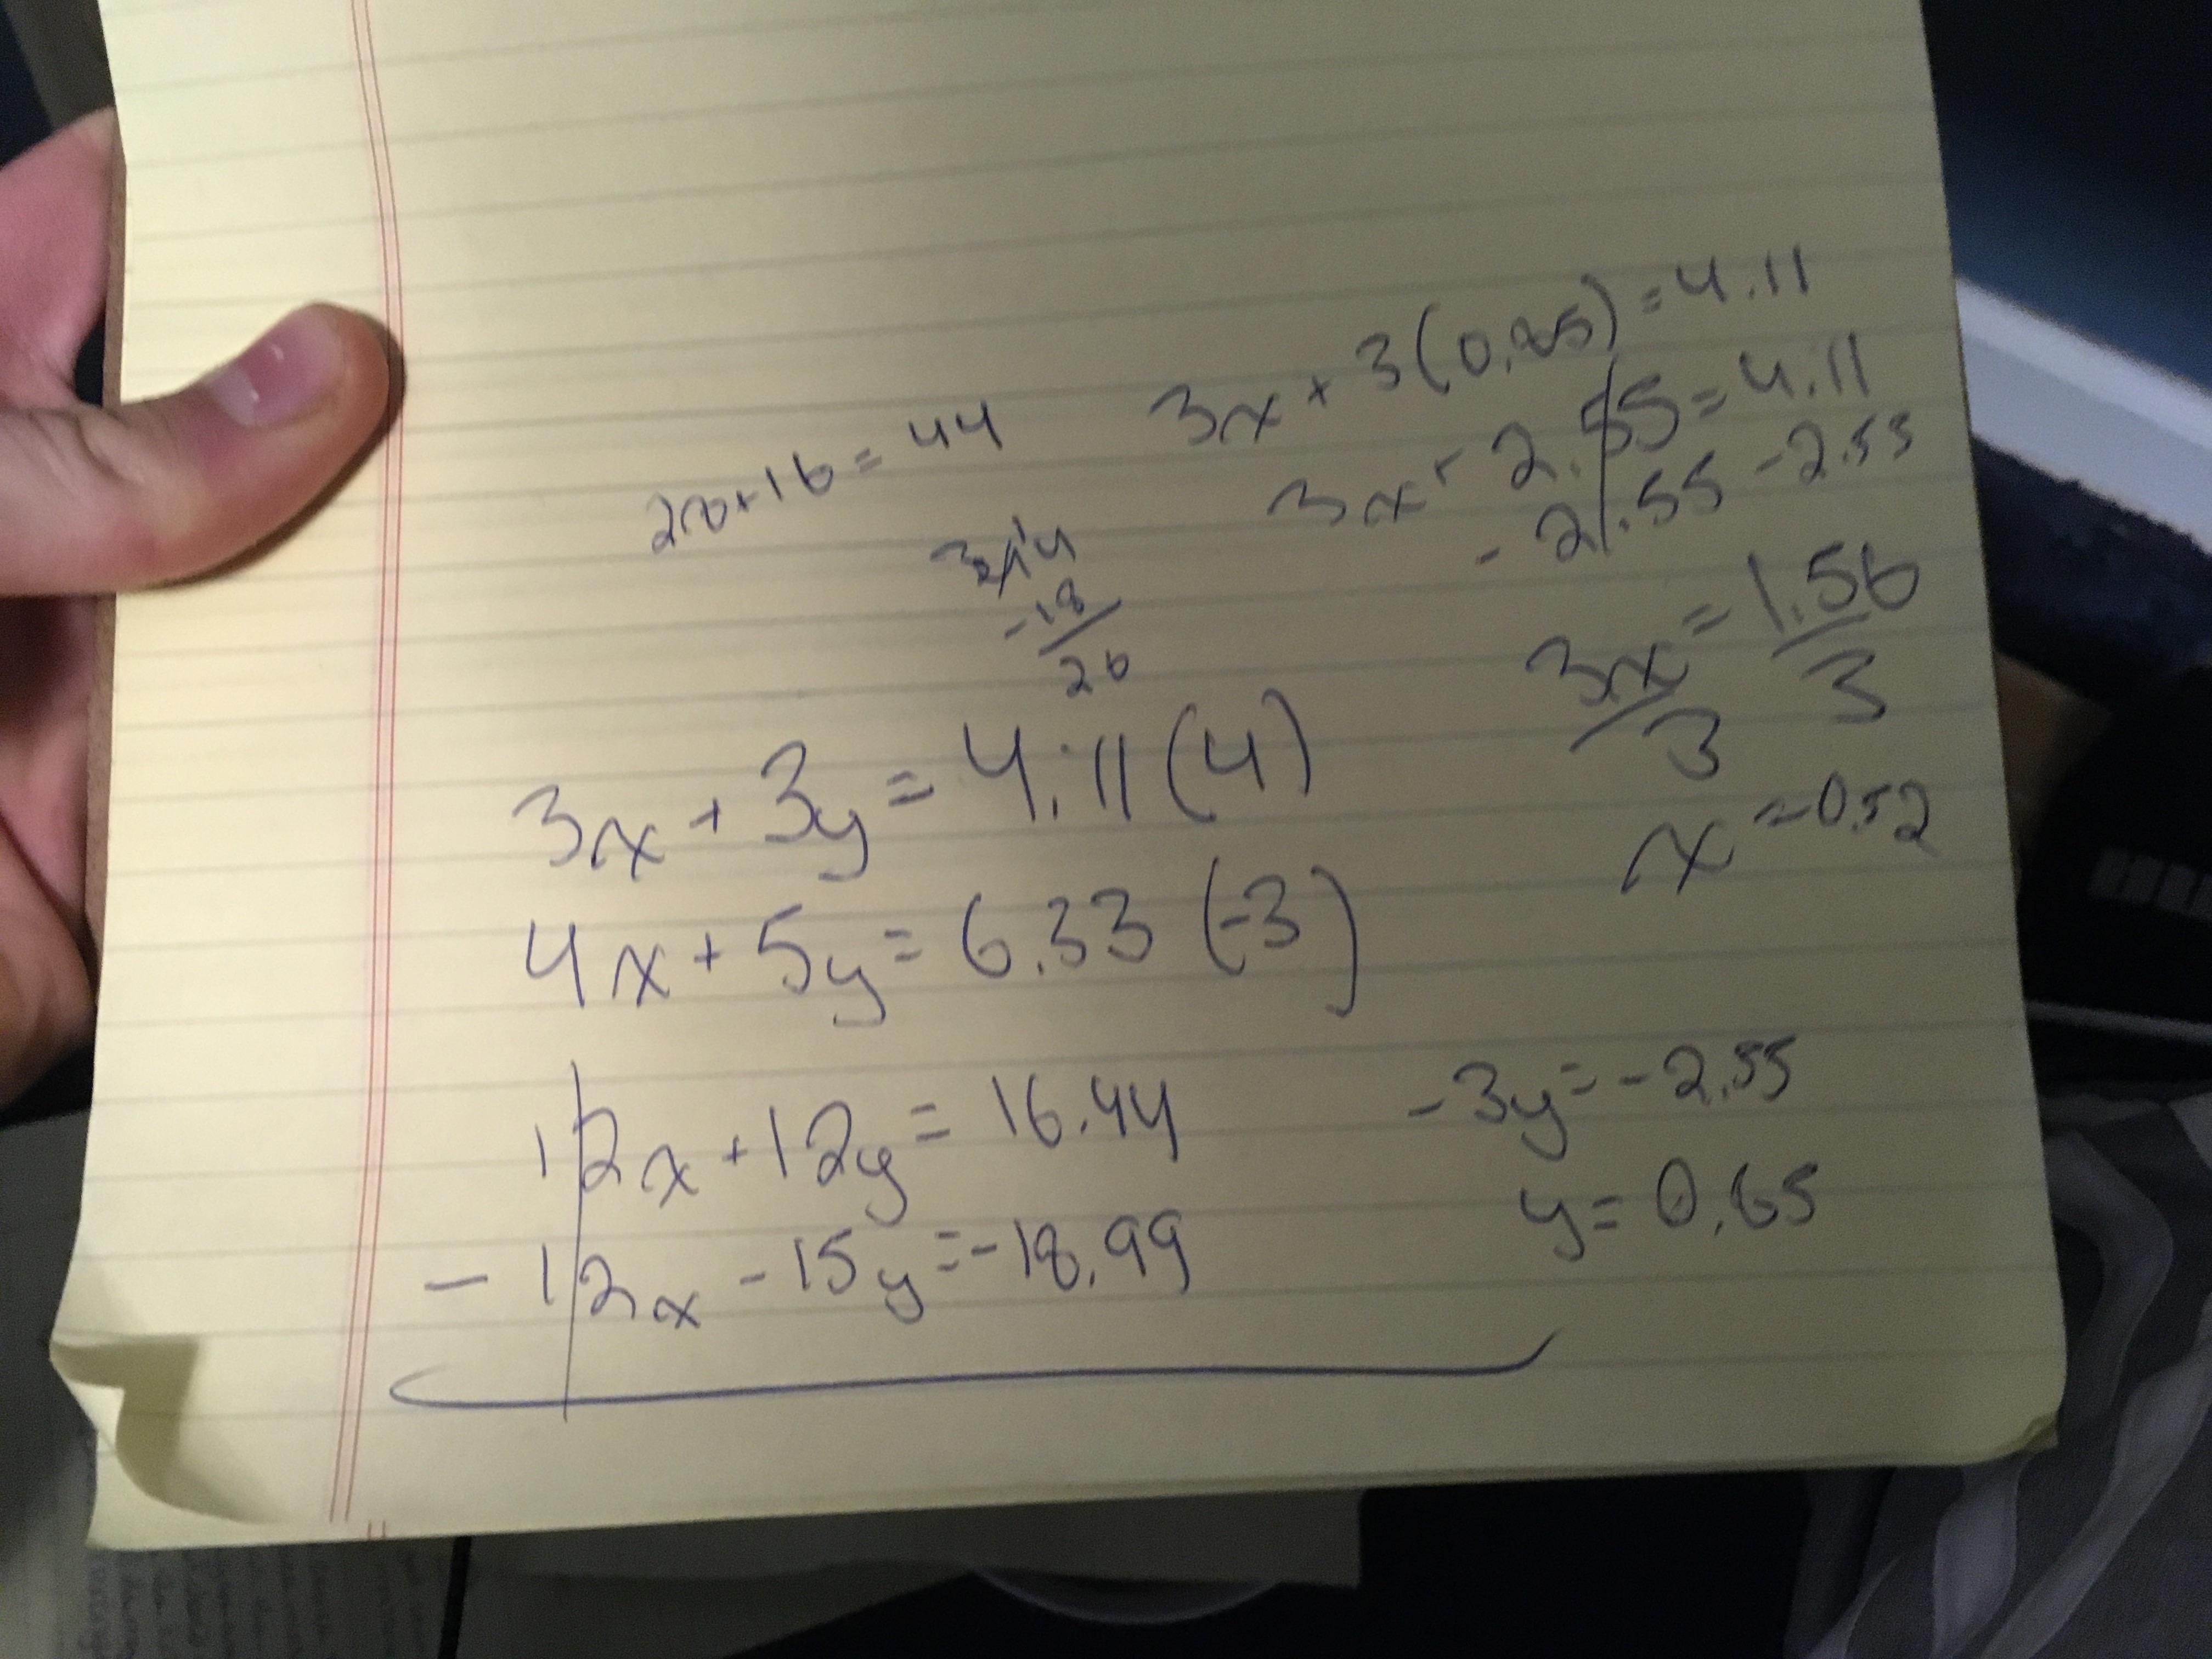 2x+16=44
3 14
-18
26
3x+3y=4.11(4)
4x+5y=6.33(-3)
12x+12y=16.44
-12x-15y=-18.99
3x+3(0.85)=4.11
3x+2.55=4.11
-2.55 -2.55
3x=1.56
3 3
x=0.52
-3y=-2.55
y=0.85